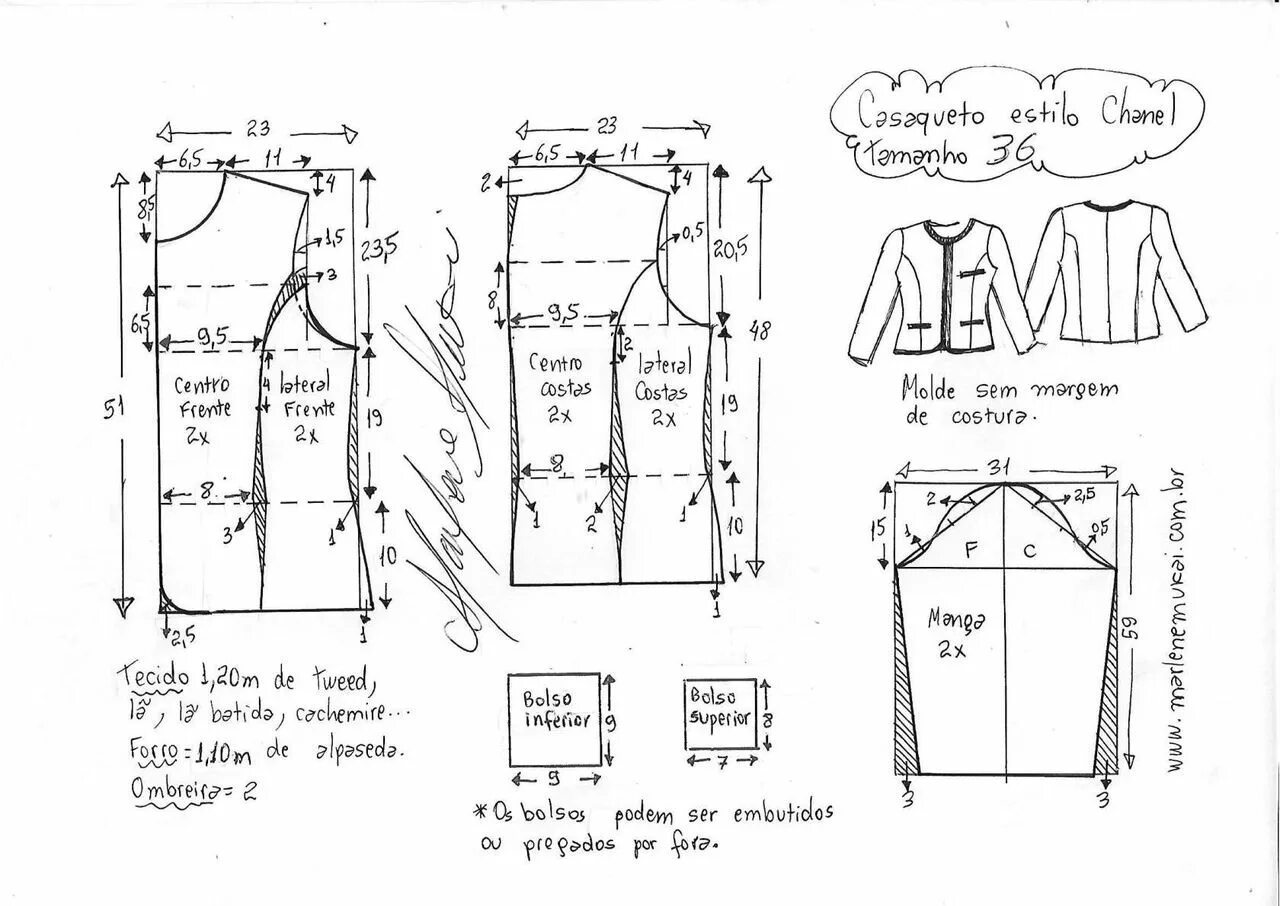 Casaqueto estilo Chanel
tamanho 36
23
6,5 11
4
8,5
1,5
23,5
3
6,5
9,5
4
Centro
Frente
2x
lateral
Frente
2x
51
19
8
3
1
10
2,5
1
23
6,5 11
2
4
0,5
20,5
8
9,5
2
48
Centro
costas
2x
lateral
Costas
2x
19
8
1
2
1
10
1
Molde sem margem
de costura.
31
15
2
2,5
1
0,5
F
C
Manga
2x
59
3
3
www.marlenemukai.com.br
Marlene Mukai
Tecido 1,20m de tweed,
lã, lã batida, cachemire...
Forro=1,10m de alpaseda.
Ombreira= 2
Bolso
inferior
9
9
Bolso
superior
8
7
*Os bolsos podem ser embutidos
ou pregados por fora.